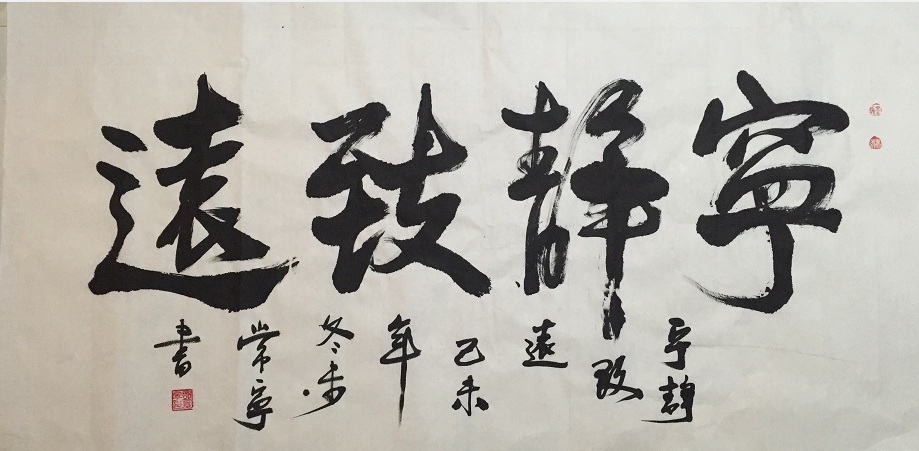 寧靜致遠
寧靜
致
遠
乙未
年
冬
常寧
書